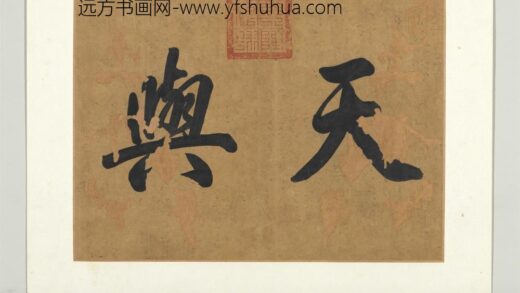 远方书画网-www.yfshuhua.com
天與